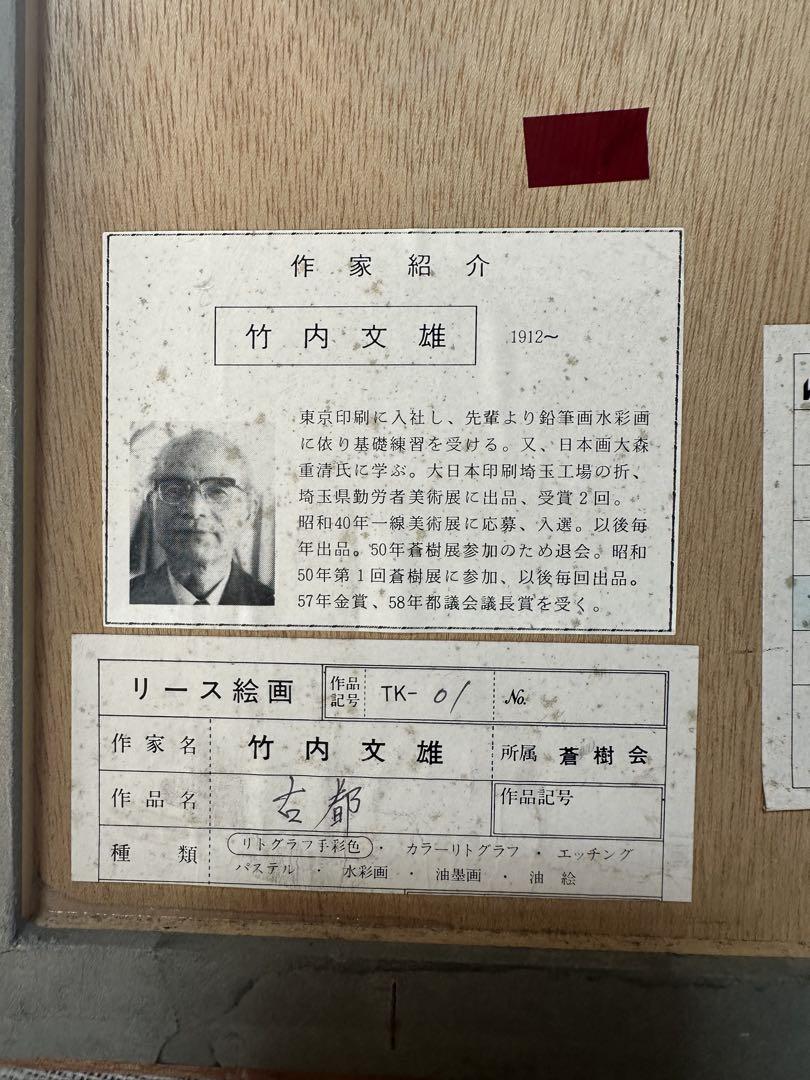 作家紹介
竹内文雄 1912〜
東京印刷に入社し、先輩より鉛筆画水彩画
に依り基礎練習を受ける。又、日本画大森
重清氏に学ぶ。大日本印刷埼玉工場の折、
埼玉県勤労者美術展に出品、受賞2回。
昭和40年一線美術展に応募、入選。以後毎
年出品。50年蒼樹展参加のため退会。昭和
50年第1回蒼樹展に参加、以後毎回出品。
57年金賞、58年都議会議長賞を受く。
リース絵画 作品記号 TK-01 No.
作家名 竹内文雄 所属 蒼樹会
作品名 古都 作品記号
種類 リトグラフ手彩色・カラーリトグラフ・エッチング
パステル・水彩画・油墨画・油絵